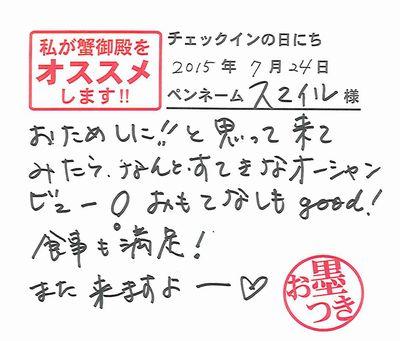 私が蟹御殿を
オススメ
します!!
チェックインの日にち
2015年 7月24日
ペンネーム スマイル 様
おためしに!!と思って来て
みたら、なんと、すてきなオーシャン
ビュー。おもてなしもgood!
食事も満足!
また来ますよー♡
お墨つき